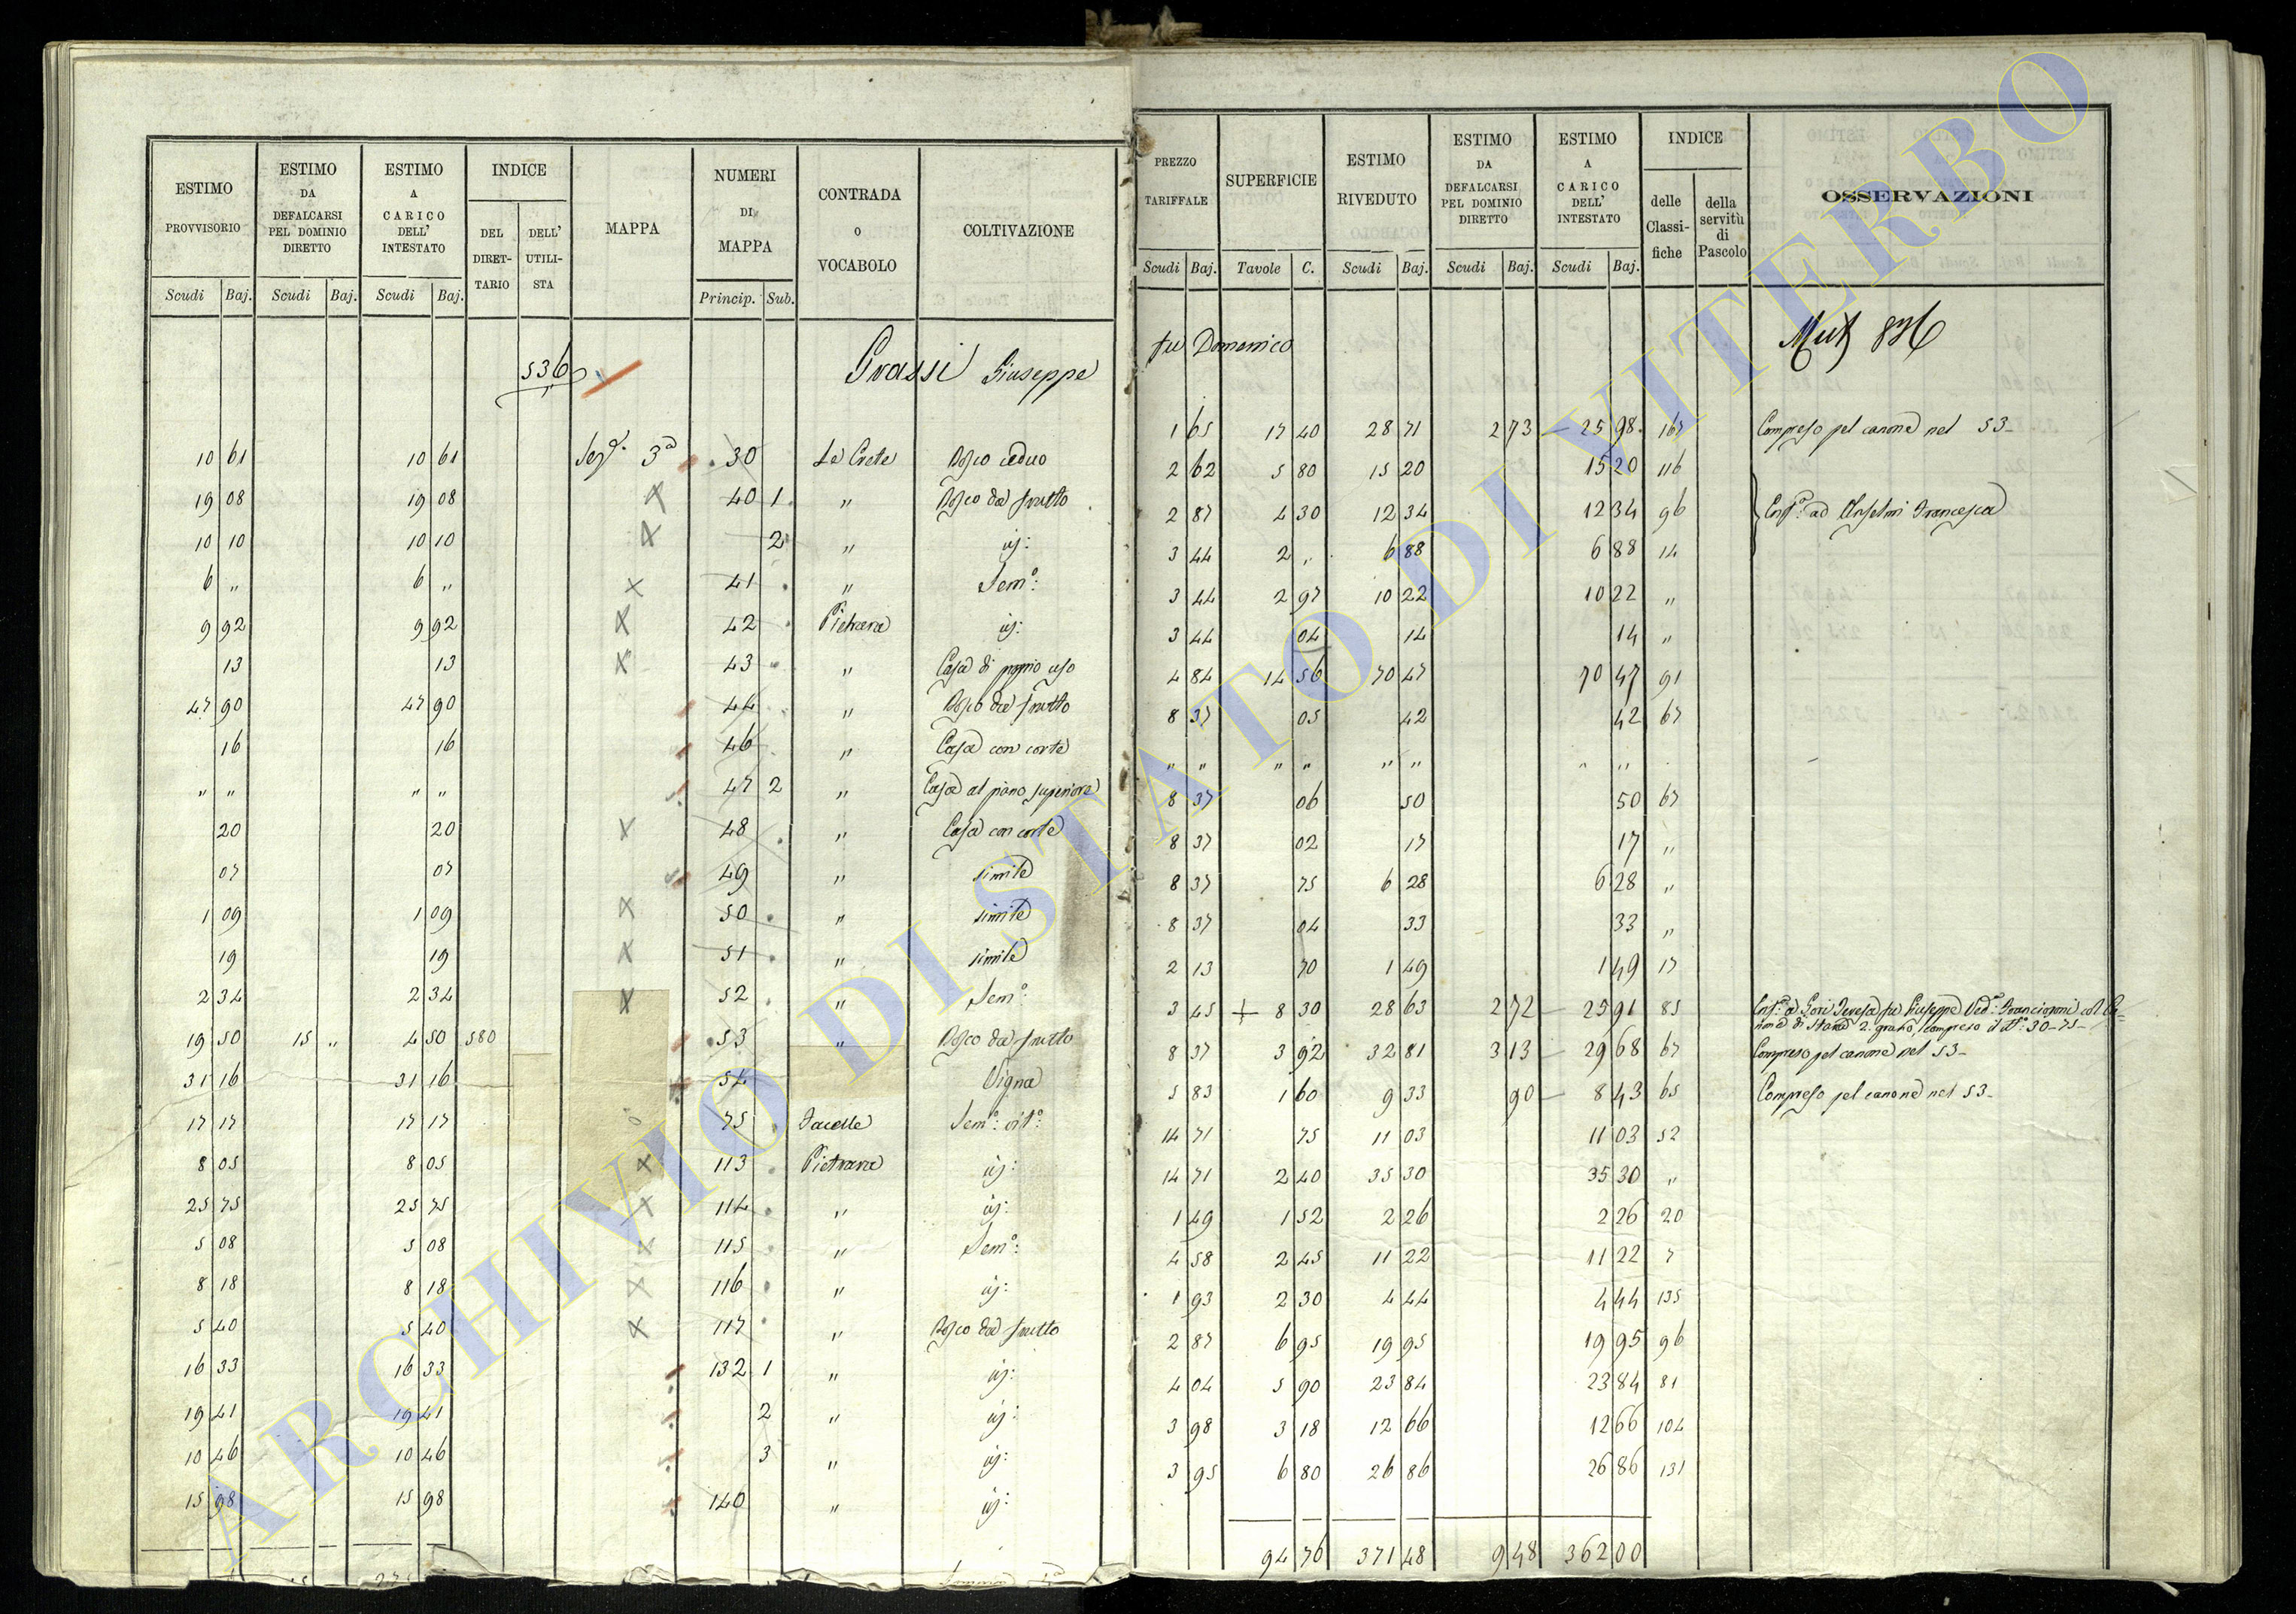 ESTIMO PROVVISORIO | ESTIMO DA DEFALCARSI PEL DOMINIO DIRETTO | ESTIMO A CARICO DELL' INTESTATO | INDICE DEL DIRET- TARIO | DELL' UTILI- STA | MAPPA | NUMERI DI MAPPA | CONTRADA O VOCABOLO | COLTIVAZIONE | PREZZO TARIFFALE | SUPERFICIE | ESTIMO RIVEDUTO | ESTIMO DA DEFALCARSI PEL DOMINIO DIRETTO | ESTIMO A CARICO DELL' INTESTATO | INDICE delle Classi- fiche | della servitù di Pascolo | OSSERVAZIONI
Scudi Baj. | Scudi Baj. | Scudi Baj. | Princip. Sub. | Scudi Baj. | Tavole C. | Scudi Baj. | Scudi Baj. | Scudi Baj.
536 Grassi Giuseppe fu Domenico
10 61 | 10 61 | Sezᵉ 3ª | 30 | Le Crete | Bosco ceduo | 1 65 | 17 40 | 28 71 | 2 73 | 25 98 | 167 | Compreso pel canone nel 53-
19 08 | 19 08 | 40 1 | " | Bosco da frutto | 2 62 | 5 80 | 15 20 | 15 20 | 116
10 10 | 10 10 | 2 | " | id: | 2 87 | 4 30 | 12 34 | 12 34 | 96 | ad Anselmi Francesca
6 " | 6 " | 41 | " | Semº: | 3 44 | 2 " | 6 88 | 6 88 | 14
9 92 | 9 92 | 42 | Pietrara | id: | 3 44 | 2 97 | 10 22 | 10 22 | "
13 | 13 | 43 | " | Casa di proprio uso | 3 44 | 04 | 14 | 14 | "
47 90 | 47 90 | 44 | " | Bosco da frutto | 4 84 | 14 56 | 70 47 | 70 47 | 91
16 | 16 | 46 | " | Casa con corte | 8 37 | 05 | 42 | 42 | 67
" " | " " | 47 2 | " | Casa al piano superiore | " " | " " | " " | " "
20 | 20 | 48 | " | Casa con corte | 8 37 | 06 | 50 | 50 | 67
07 | 07 | 49 | " | simile | 8 37 | 02 | 17 | 17 | "
1 09 | 1 09 | 50 | " | simile | 8 37 | 75 | 6 28 | 6 28 | "
19 | 19 | 51 | " | simile | 8 37 | 04 | 33 | 33 | "
2 34 | 2 34 | 52 | " | Semº: | 2 13 | 70 | 1 49 | 1 49 | 17
19 50 | 15 " | 4 50 | 580 | 53 | " | Bosco da frutto | 3 45 | 8 30 | 28 63 | 2 72 | 25 91 | 85 | a Gori Teresa fu Giuseppe Vedª: Francioni
di Stara 2. grano, compreso il Nº: 30-75-
31 16 | 31 16 | 54 | Vigna | 8 37 | 3 92 | 32 81 | 3 13 | 29 68 | 67 | Compreso pel canone nel 53-
17 17 | 17 17 | 75 | Semº: vitº: | 5 83 | 1 60 | 9 33 | 90 | 8 43 | 65 | Compreso pel canone nel 53-
8 05 | 8 05 | 113 | Pietrara | id: | 14 71 | 75 | 11 03 | 11 03 | 52
25 75 | 25 75 | 114 | " | id: | 14 71 | 2 40 | 35 30 | 35 30 | "
5 08 | 5 08 | 115 | " | Semº: | 1 49 | 1 52 | 2 26 | 2 26 | 20
8 18 | 8 18 | 116 | " | id: | 4 58 | 2 45 | 11 22 | 11 22 | 7
5 40 | 5 40 | 117 | " | Bosco da frutto | 1 93 | 2 30 | 4 44 | 4 44 | 135
16 33 | 16 33 | 132 1 | " | id: | 2 87 | 6 95 | 19 95 | 19 95 | 96
19 41 | 19 41 | 2 | " | id: | 4 04 | 5 90 | 23 84 | 23 84 | 81
10 46 | 10 46 | 3 | " | id: | 3 98 | 3 18 | 12 66 | 12 66 | 104
15 98 | 15 98 | 140 | " | id: | 3 95 | 6 80 | 26 86 | 26 86 | 131
94 76 | 371 48 | 9 48 | 362 00
ARCHIVIO DI STATO DI VITERBO